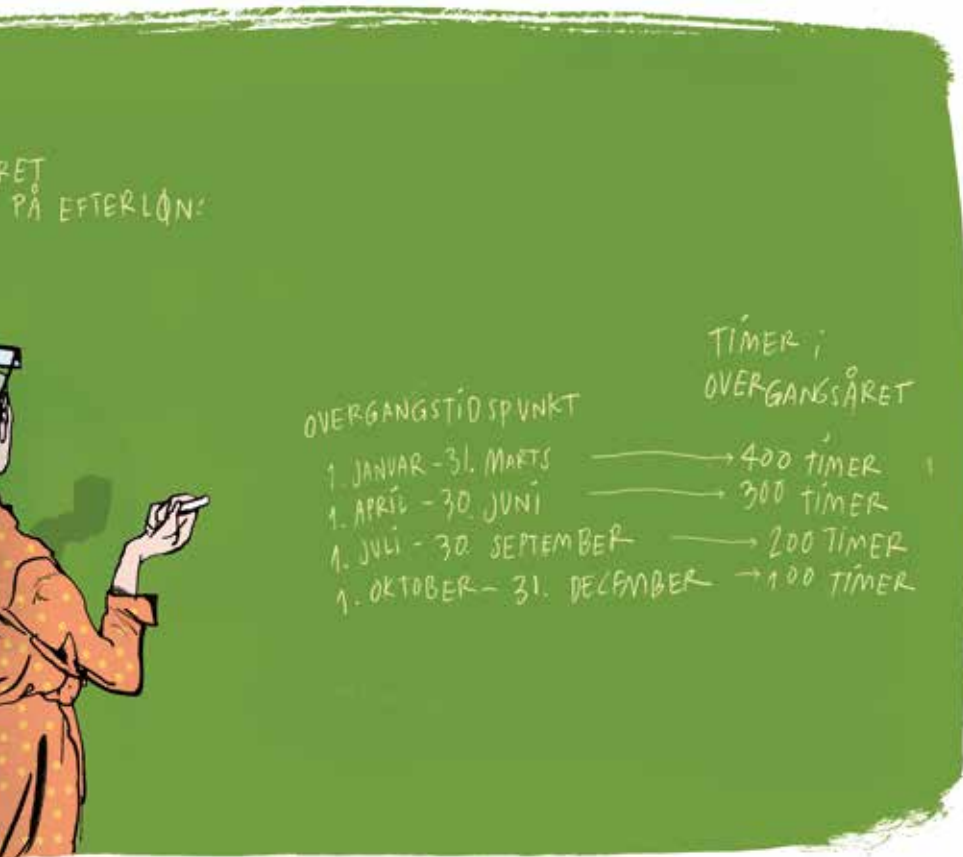 RET
PÅ EFTERLØN:
OVERGANGSTIDSPUNKT
TIMER I
OVERGANGSÅRET
1. JANUAR - 31. MARTS → 400 TIMER
1. APRIL - 30. JUNI → 300 TIMER
1. JULI - 30. SEPTEMBER → 200 TIMER
1. OKTOBER - 31. DECEMBER → 100 TIMER